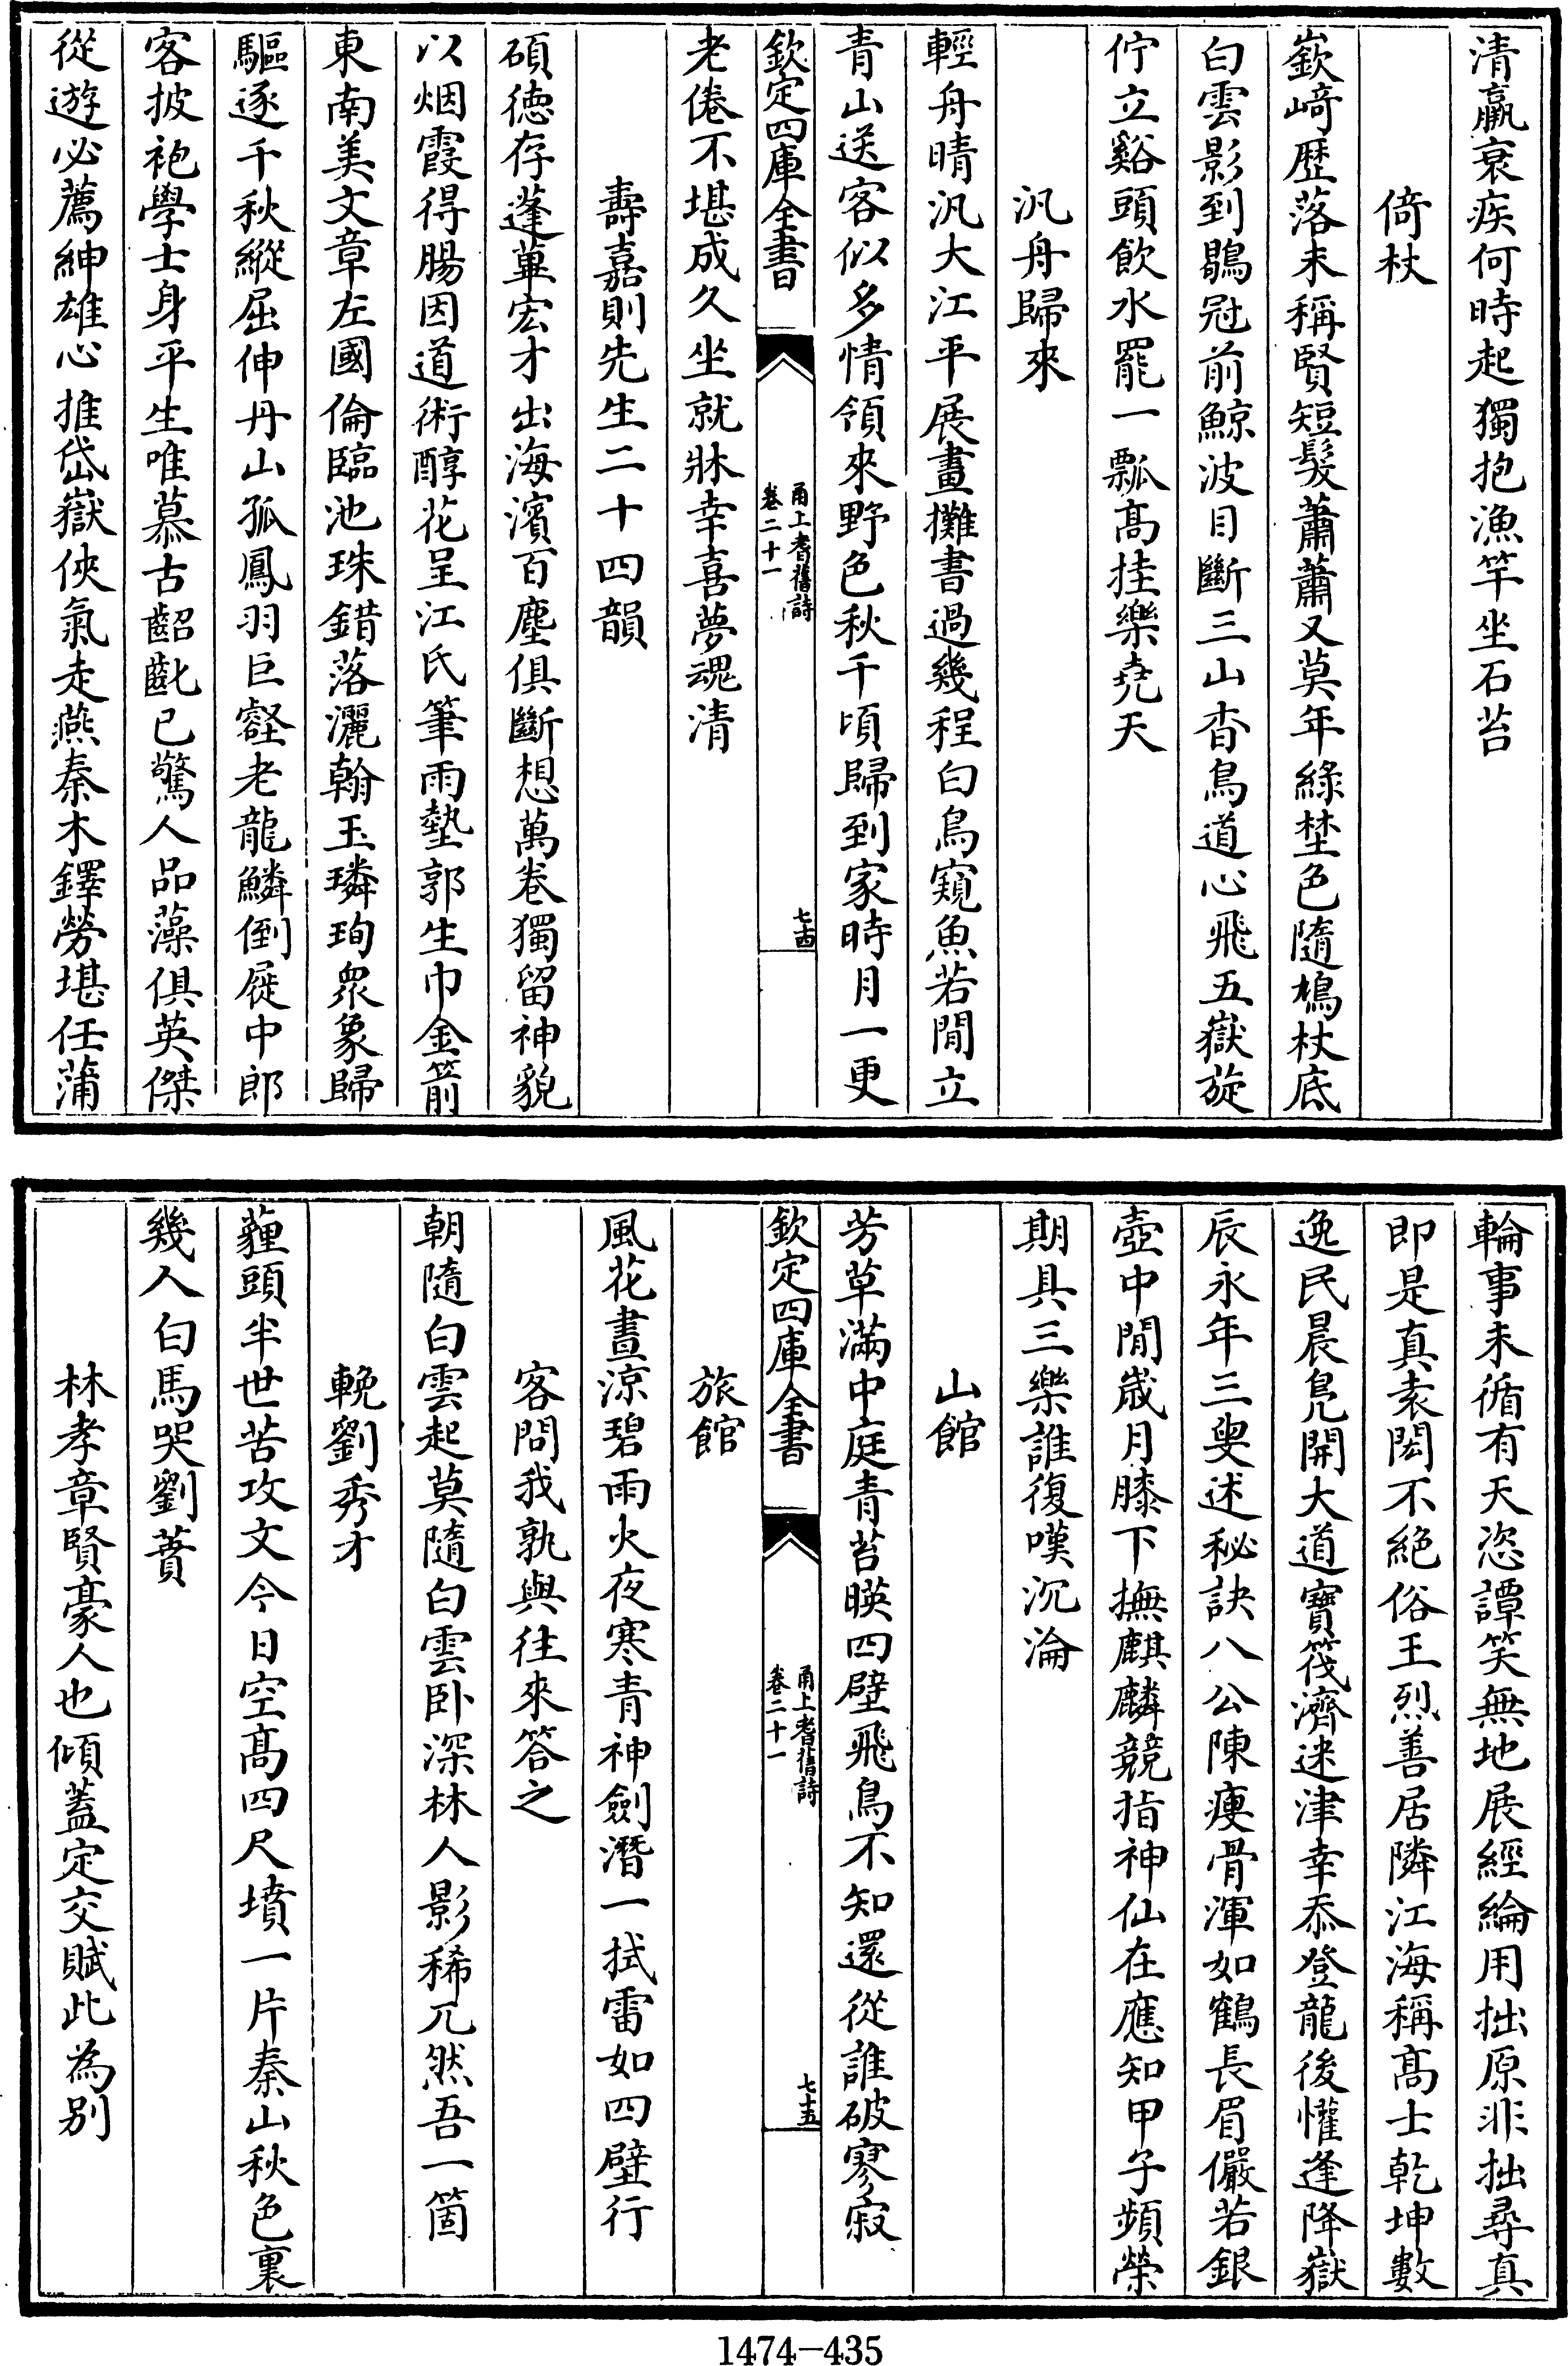 清羸衰疾何時起獨抱漁竿坐石苔
倚杖
嶔﨑歴落未稱賢短髮蕭蕭又莫年綠埜色隨鳩杖底
白雲影到鶡冠前鯨波目斷三山杳鳥道心飛五嶽旋
佇立谿頭飲水罷一瓢髙挂樂堯天
汎舟歸來
輕舟晴汎大江平展畫攤書過幾程白鳥窺魚若閒立
青山送客似多情領來野色秋千頃歸到家時月一更
欽定四庫全書
甬上耆舊詩
卷二十一
七十四
老倦不堪成久坐就牀幸喜夢魂清
壽嘉則先生二十四韻
碩徳存蓬蓽宏才出海濱百塵俱斷想萬卷獨留神貌
以烟霞得腸因道術醇花呈江氏筆雨墊郭生巾金箭
東南美文章左國倫臨池珠錯落灑翰玉璘珣衆象歸
驅逐千秋縱屈伸丹山孤鳳羽巨壑老龍鱗倒屣中郎
客披袍學士身平生唯慕古齠齔已驚人品藻俱英傑
從遊必薦紳雄心推岱嶽俠氣走燕秦木鐸勞堪任蒲
輪事未循有天恣譚笑無地展經綸用拙原非拙尋真
即是真袁閎不絶俗王烈善居隣江海稱髙士乾坤數
逸民晨鳬開大道寶筏濟迷津幸忝登龍後懽逢降嶽
辰永年三叟述秘訣八公陳瘦骨渾如鶴長眉儼若銀
壺中閒嵗月膝下撫麒麟競指神仙在應知甲子頻榮
期具三樂誰復嘆沉淪
山館
芳草滿中庭青苔暎四壁飛鳥不知還從誰破寥寂
欽定四庫全書
甬上耆舊詩
卷二十一
七十五
旅館
風花晝涼碧雨火夜寒青神劍潛一拭雷如四壁行
客問我孰與往來答之
朝隨白雲起莫隨白雲卧深林人影稀兀然吾一箇
輓劉秀才
薶頭半世苦攻文今日空髙四尺墳一片秦山秋色裏
幾人白馬哭劉蕡
林孝章賢豪人也傾蓋定交賦此為别
1474-435